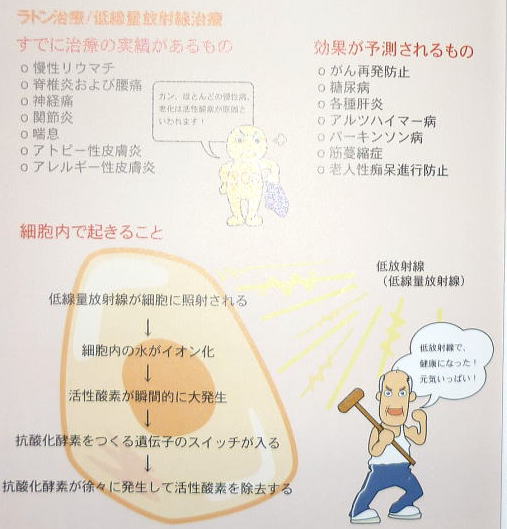 ラトン治療/低線量放射線治療
すでに治療の実績があるもの
o 慢性リウマチ
o 脊椎炎および腰痛
o 神経痛
o 関節炎
o 喘息
o アトピー性皮膚炎
o アレルギー性皮膚炎
ガン、ほとんどの慢性病、
老化は活性酸素が原因と
いわれます！
効果が予測されるもの
o がん再発防止
o 糖尿病
o 各種肝炎
o アルツハイマー病
o パーキンソン病
o 筋萎縮症
o 老人性痴呆進行防止
細胞内で起きること
低線量放射線が細胞に照射される
↓
細胞内の水がイオン化
↓
活性酸素が瞬間的に大発生
↓
抗酸化酵素をつくる遺伝子のスイッチが入る
↓
抗酸化酵素が徐々に発生して活性酸素を除去する
低放射線
（低線量放射線）
低放射線で、
健康になった！
元気いっぱい！